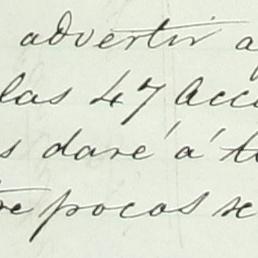 advertir a
las 47 Acci
s daré á t
tre pocos se